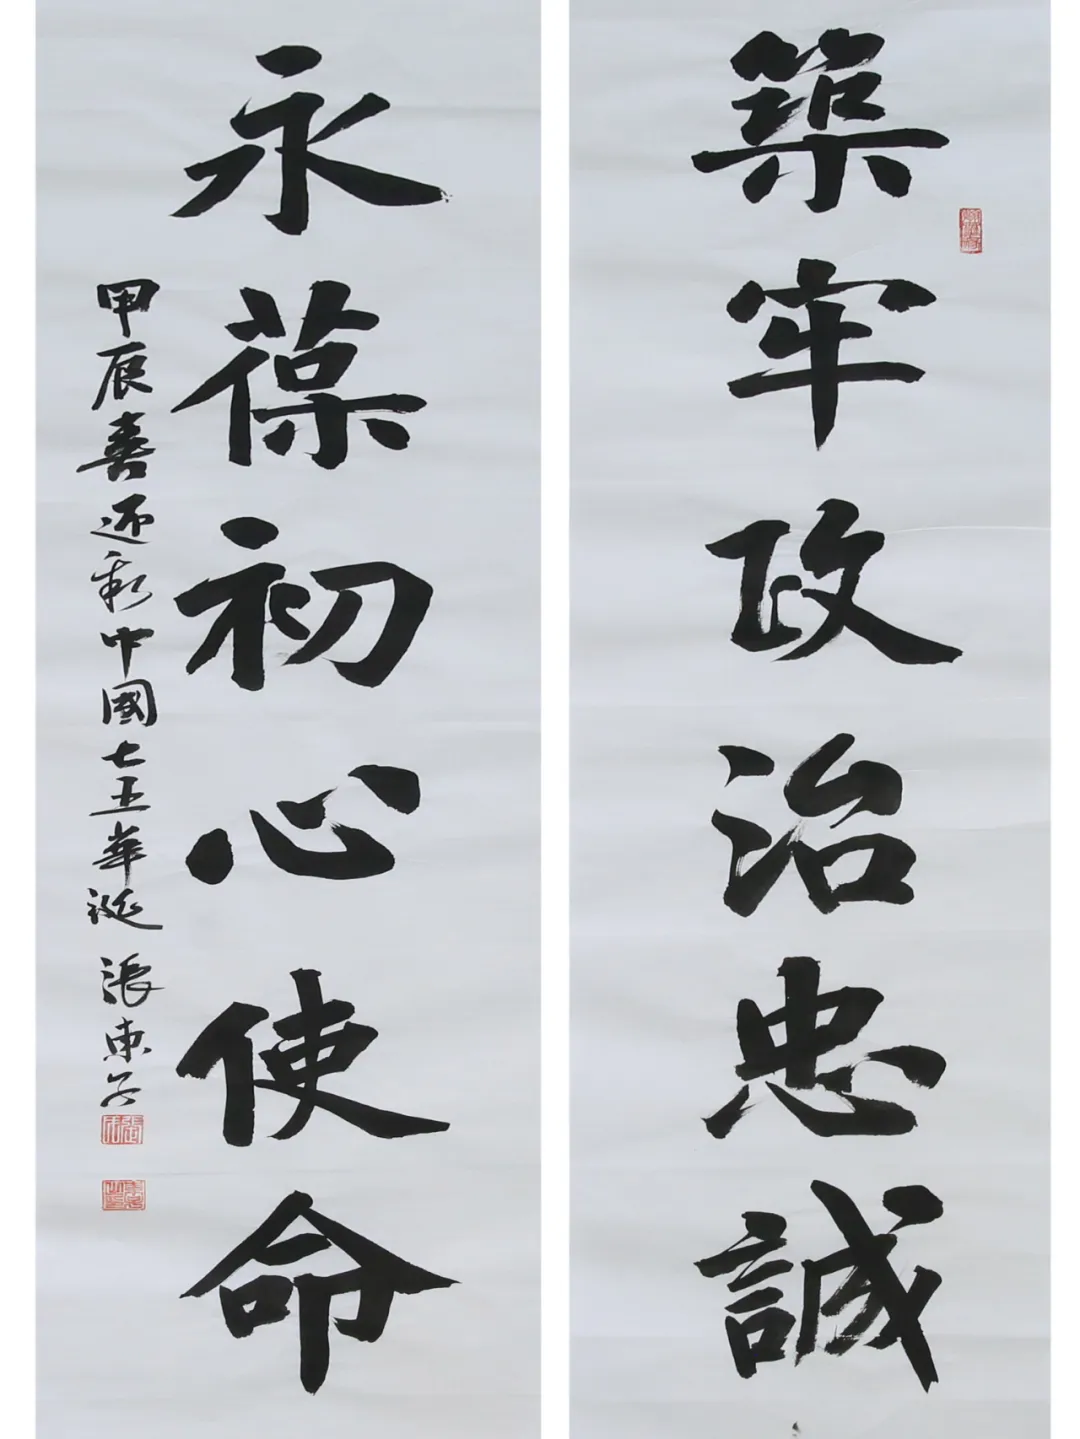 築牢政治忠誠
永葆初心使命
甲辰喜迎新中國七五華誕 張東